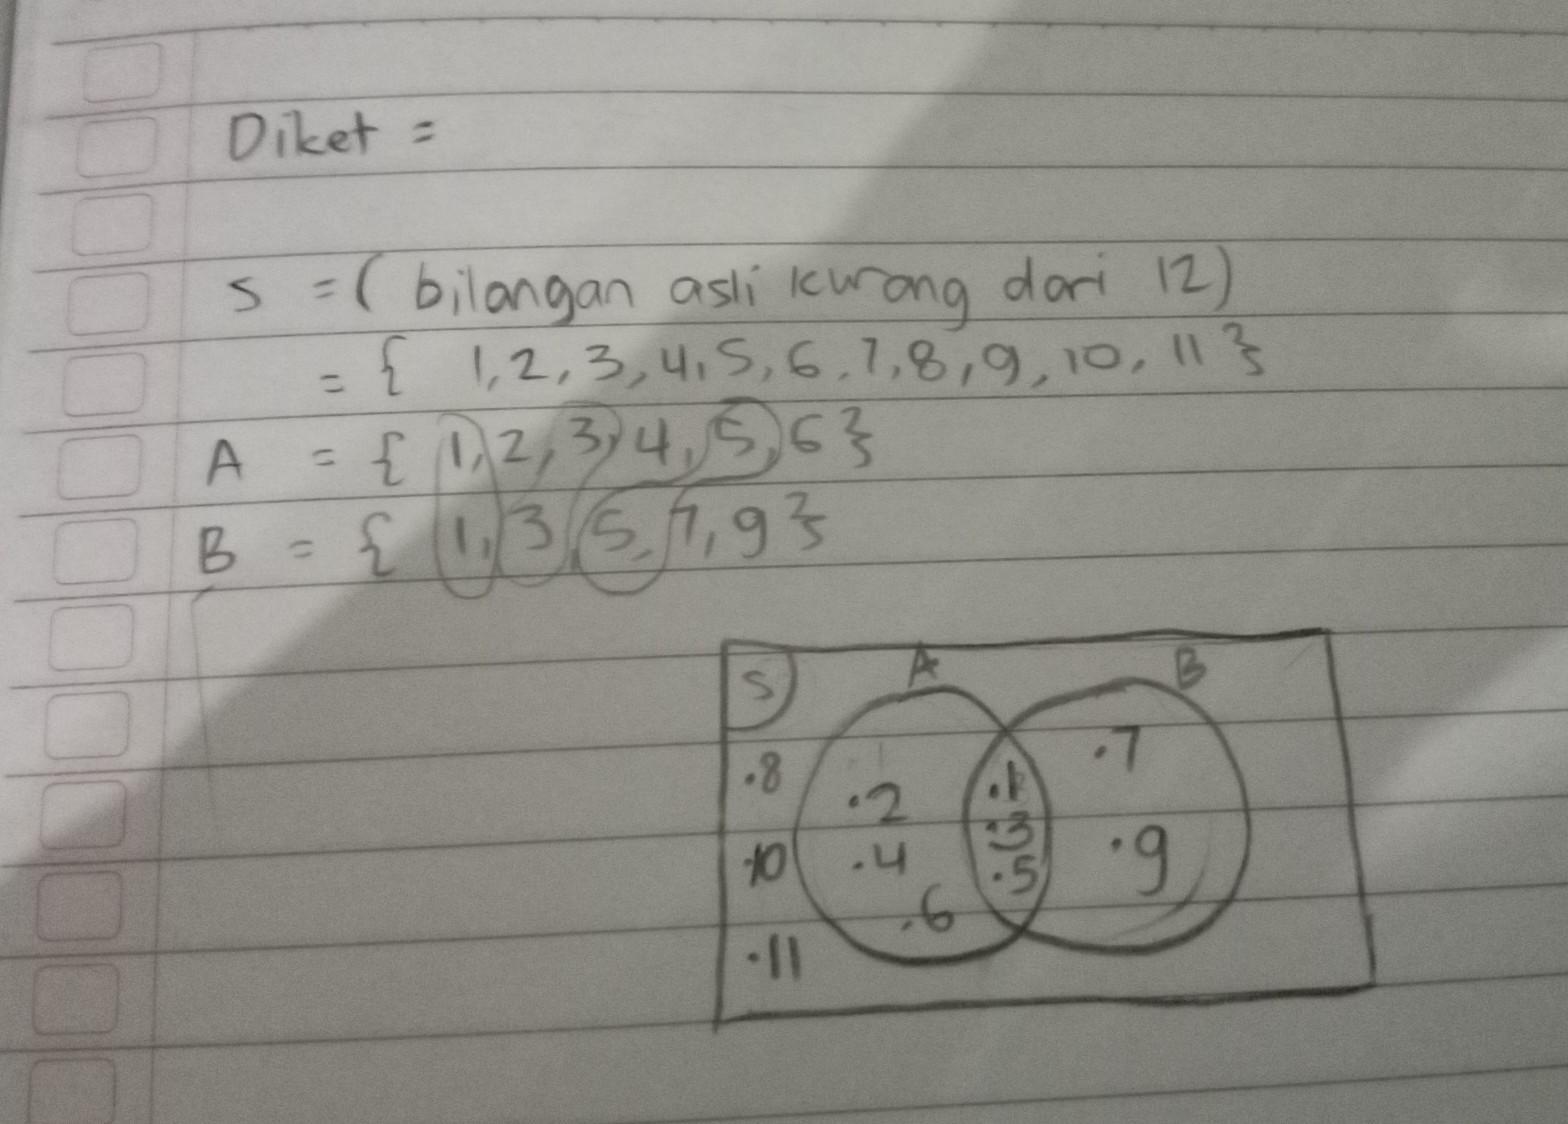 Diket =
S = ( bilangan asli kurang dari 12)
= { 1, 2, 3, 4, 5, 6, 7, 8, 9, 10, 11 }
A = { 1, 2, 3, 4, 5, 6 }
B = { 1, 3, 5, 7, 9 }
S A B
.8 .2 .1 .7
.3
.10 .4 .5 .9
.6
.11